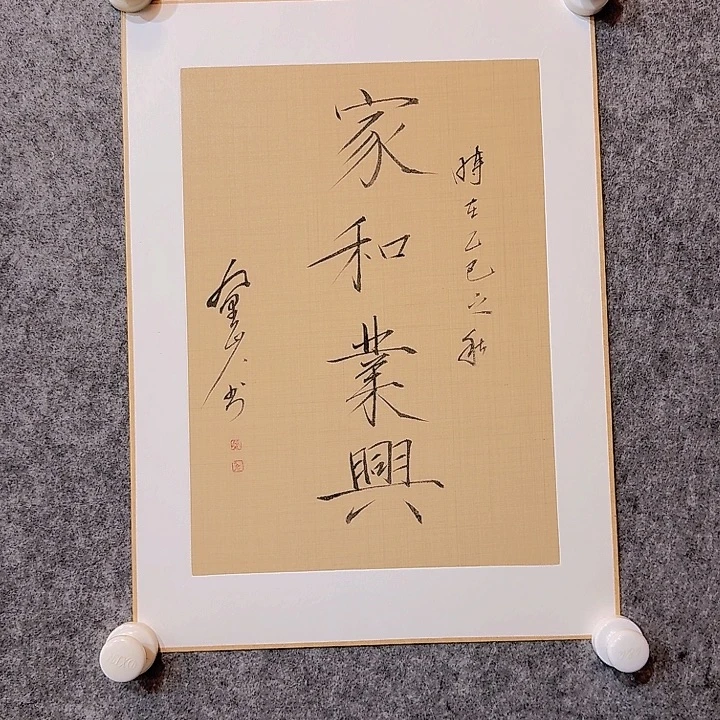 時在乙巳之秋
家和業興
書